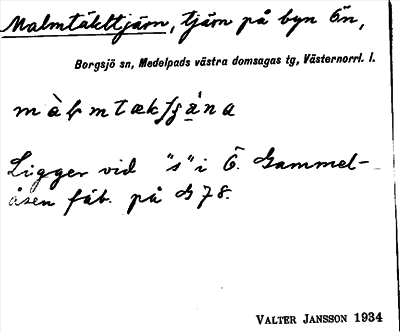 Malmtäkttjärn, tjärn på byn Ön,
Borgsjö sn, Medelpads västra domsagas tg, Västernorrl. l.
Ligger vid "s" i Ö. Gammel-
åsen fäb. på G 78.
VALTER JANSSON 1934